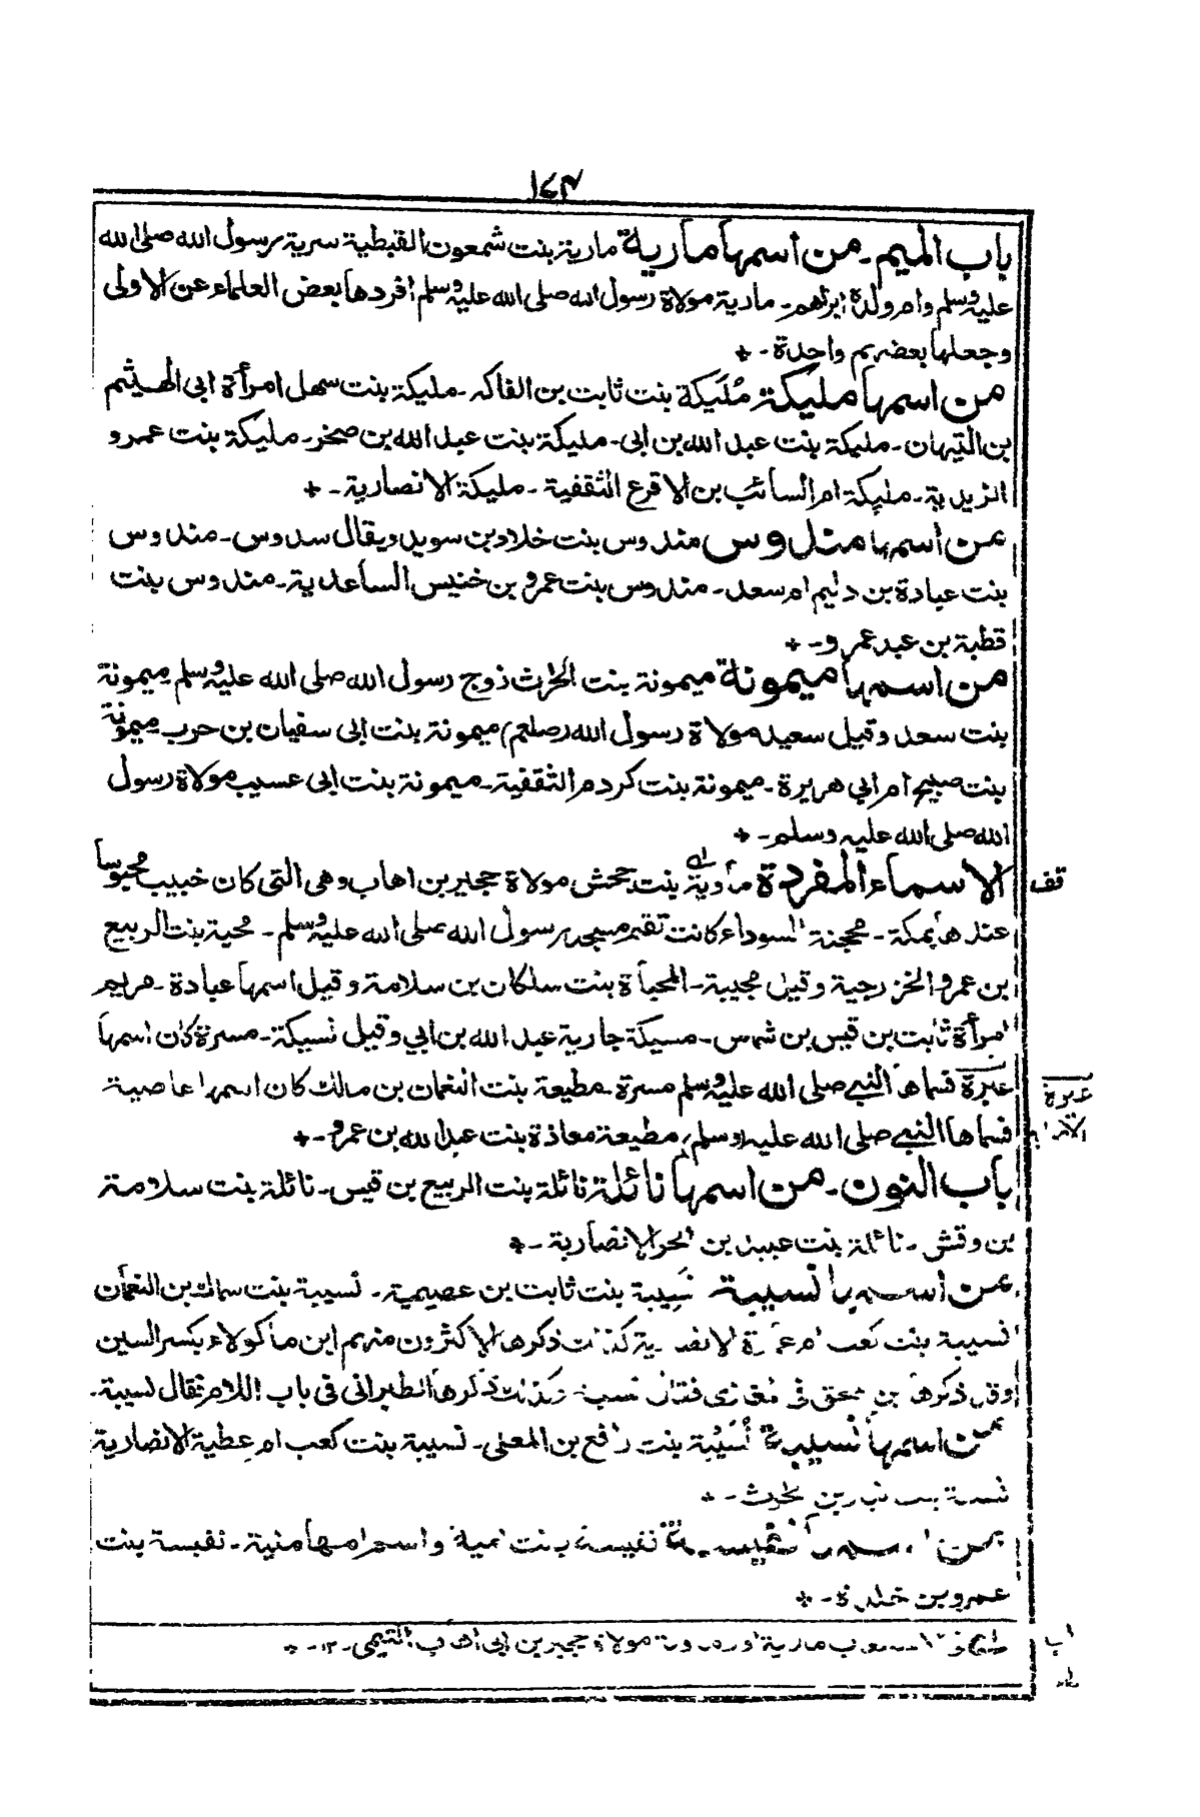 باب الميم ـ من اسمها مارية مارية بنت شمعون القبطية سرية رسول الله صلى الله
عليه وسلم وام ولده ابراهم ـ مارية مولاة رسول الله صلى الله عليه وسلم افردها بعض العلماء عن الاولى
وجعلها بعضهم واحدة ـ
من اسمها مليكة مُلَيكة بنت ثابت بن الفاكه ـ مليكة بنت سهل امرأة ابى الهيثم
بن التيهان ـ مليكة بنت عبد الله بن ابى ـ مليكة بنت عبد الله بن صخر ـ مليكة بنت عمرو
الزيدية ـ مليكة ام السائب بن الاقرع الثقفية ـ مليكة الانصارية ـ
من اسمها مندوس مندوس بنت خلاد بن سويد ويقال سدوس ـ مندوس
بنت عبادة بن دليم ام سعد ـ مندوس بنت عمرو بن خنيس الساعدية ـ مندوس بنت
قطبة بن عبد عمرو ـ
من اسمها ميمونة ميمونة بنت الحرث زوج رسول الله صلى الله عليه وسلم ميمونة
بنت سعد وقيل سعيد مولاة رسول الله (صلعم) ميمونة بنت ابى سفيان بن حرب ميمونة
بنت صبيح ام ابي هريرة ـ ميمونة بنت كردم الثقفية ـ ميمونة بنت ابى عسيب مولاة رسول
الله صلى الله عليه وسلم ـ
الاسماء المفردة ماوية بنت جحش مولاة حجير بن اهاب وهى التى كان خبيب محبوسا
قف
عندها بمكة ـ محجنة السوداء كانت تقم مسجد رسول الله صلى الله عليه وسلم ـ محية بنت الربيع
بن عمرو الخزرجية وقيل مجيبة ـ المحياة بنت سلكان بن سلامة وقيل اسمها عبادة ـ مريم
امرأة ثابت بن قيس بن شماس ـ مسيكة جارية عبد الله بن ابي وقيل نسيكة ـ مسرة كان اسمها
عنبرة فسماها النبي صلى الله عليه وسلم مسرة ـ مطيعة بنت النعمان بن مالك كان اسمها عاصية
فسماها النبي صلى الله عليه وسلم مطيعة معاذة بنت عبد الله بن عمرو ـ
باب النون ـ من اسمها نائلة نائلة بنت الربيع بن قيس ـ نائلة بنت سلامة
بن وقش ـ نائلة بنت عبيد بن الحر الانصارية ـ
من اسمها نسيبة نَسِيبة بنت ثابت بن عصيمة ـ نسيبة بنت سماك بن النعمان
نسيبة بنت كعب ام عمارة الانصارية كذلك ذكرها الاكثرون منهم ابن ماكولاء بكسر السين
وقد ذكرها بن اسحق فى مغازى فقال نسيبة وكذلك ذكرها الطبرانى فى باب اللام فقال لسيبة ـ
من اسمها نُسيبة نُسَيْبة بنت رافع بن المعلى ـ نسيبة بنت كعب ام عطية الانصارية
نسيبة بنت نيار بن الحرث ـ
من اسمها نفيسة نفيسة بنت امية واسم امها منية ـ نفيسة بنت
عمرو بن خلدة ـ
مولاة حجير بن ابى اهاب التيمى ـ ١٢ ـ